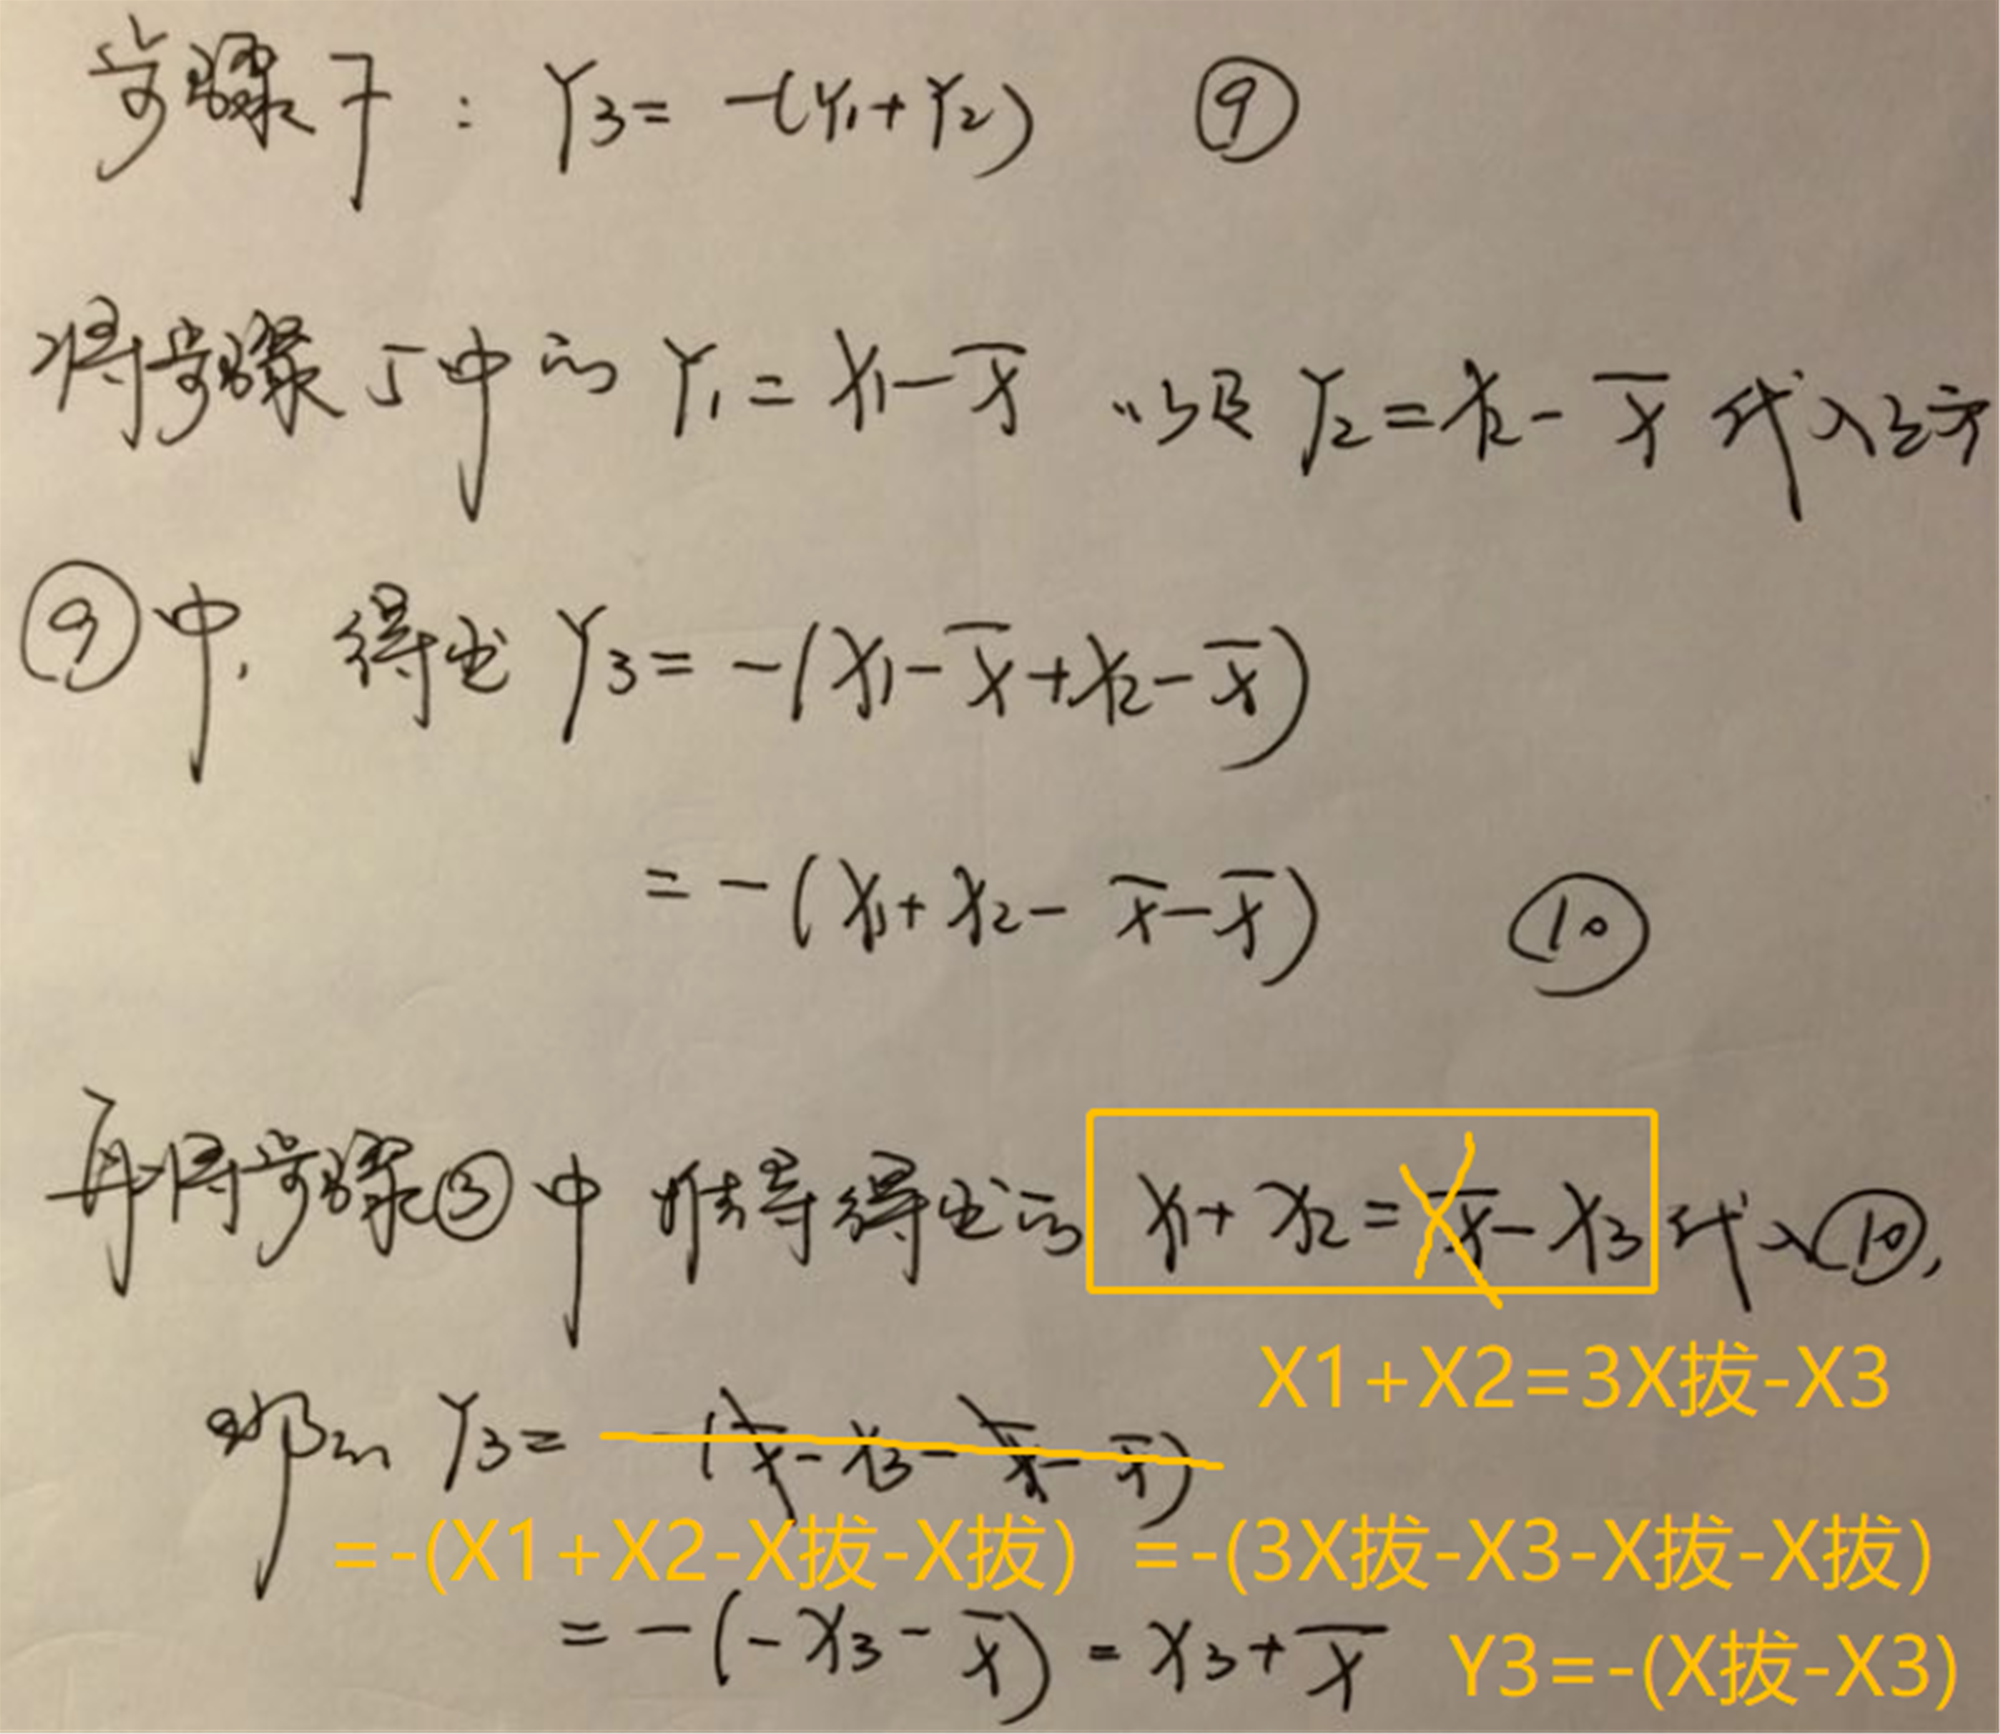 步骤7：Y₃= -(Y₁+Y₂) ⑨
将步骤5中的 Y₁=X₁-X̄ 以及 Y₂=X₂-X̄ 代入到
⑨中，得出 Y₃= -(X₁-X̄+X₂-X̄)
= -(X₁+X₂-X̄-X̄) ⑩
再将步骤③中推导得出的 X₁+X₂=X̄-X₃ 代入⑩，
X1+X2=3X拔-X3
那么 Y₃= -(X̄-X₃-X̄-X̄)
=-(X1+X2-X拔-X拔) =-(3X拔-X3-X拔-X拔)
= -(-X₃-X̄) = X₃+X̄ Y3=-(X拔-X3)